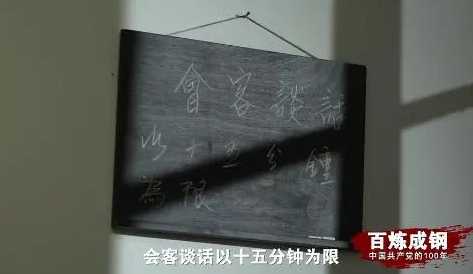 會客談話
以十五分鐘
為限
会客谈话以十五分钟为限
百炼成钢
中国共产党的100年